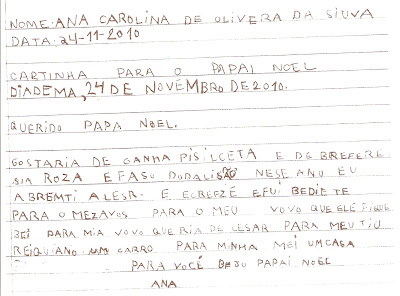 NOME: ANA CAROLINA DE OLIVERA DA SIUVA
DATA: 24-11-2010
CARTINHA PARA O PAPAI NOEL
DIADEMA, 24 DE NOVEMBRO DE 2010.
QUERIDO PAPA NOEL.
GOSTARIA DE GANHA PISILCETA E DG BREFERE
SIA ROZA E FASO DODALISÃO NESE ANO EU
ABREMTI ALESR. E ECREFZÉ E FUI BEDIETE
PARA O MEZAVOS PARA O MEU VOVO QUE ELE FIQUE
BEI PARA MIA VOVO QUE RIA DE CESAR PARA MEU TIU
REIQUIANO UM CARRO PARA MINHA MEI UM CASA
PARA VOCÊ BEJU PAPAI NOEL
ANA